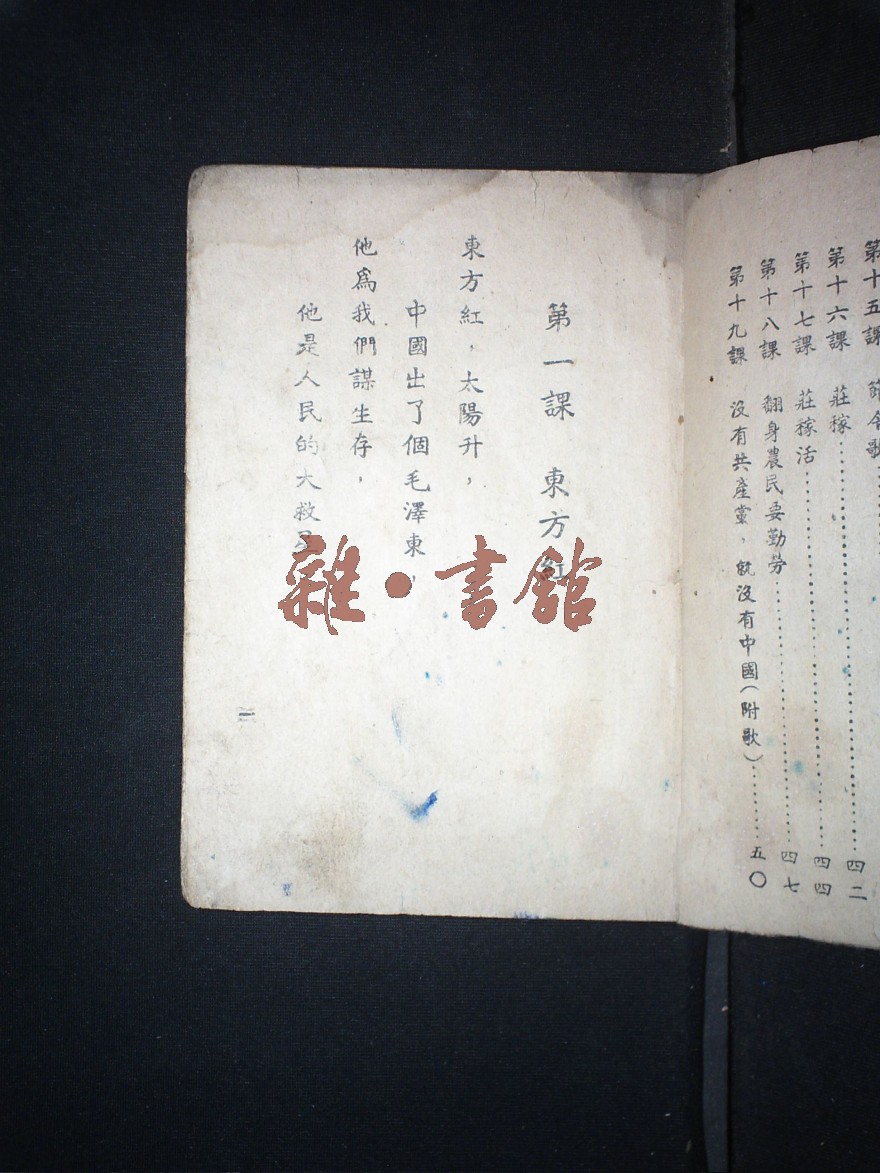 第十五課 節令歌
第十六課 莊稼……四二
第十七課 莊稼活……四四
第十八課 翻身農民要勤劳……四七
第十九課 没有共產黨，就没有中國（附歌）……五〇
第一課 東方紅
東方紅，太陽升，
中國出了個毛澤東，
他爲我們謀生存，
他是人民的大救星
一
雜·書館